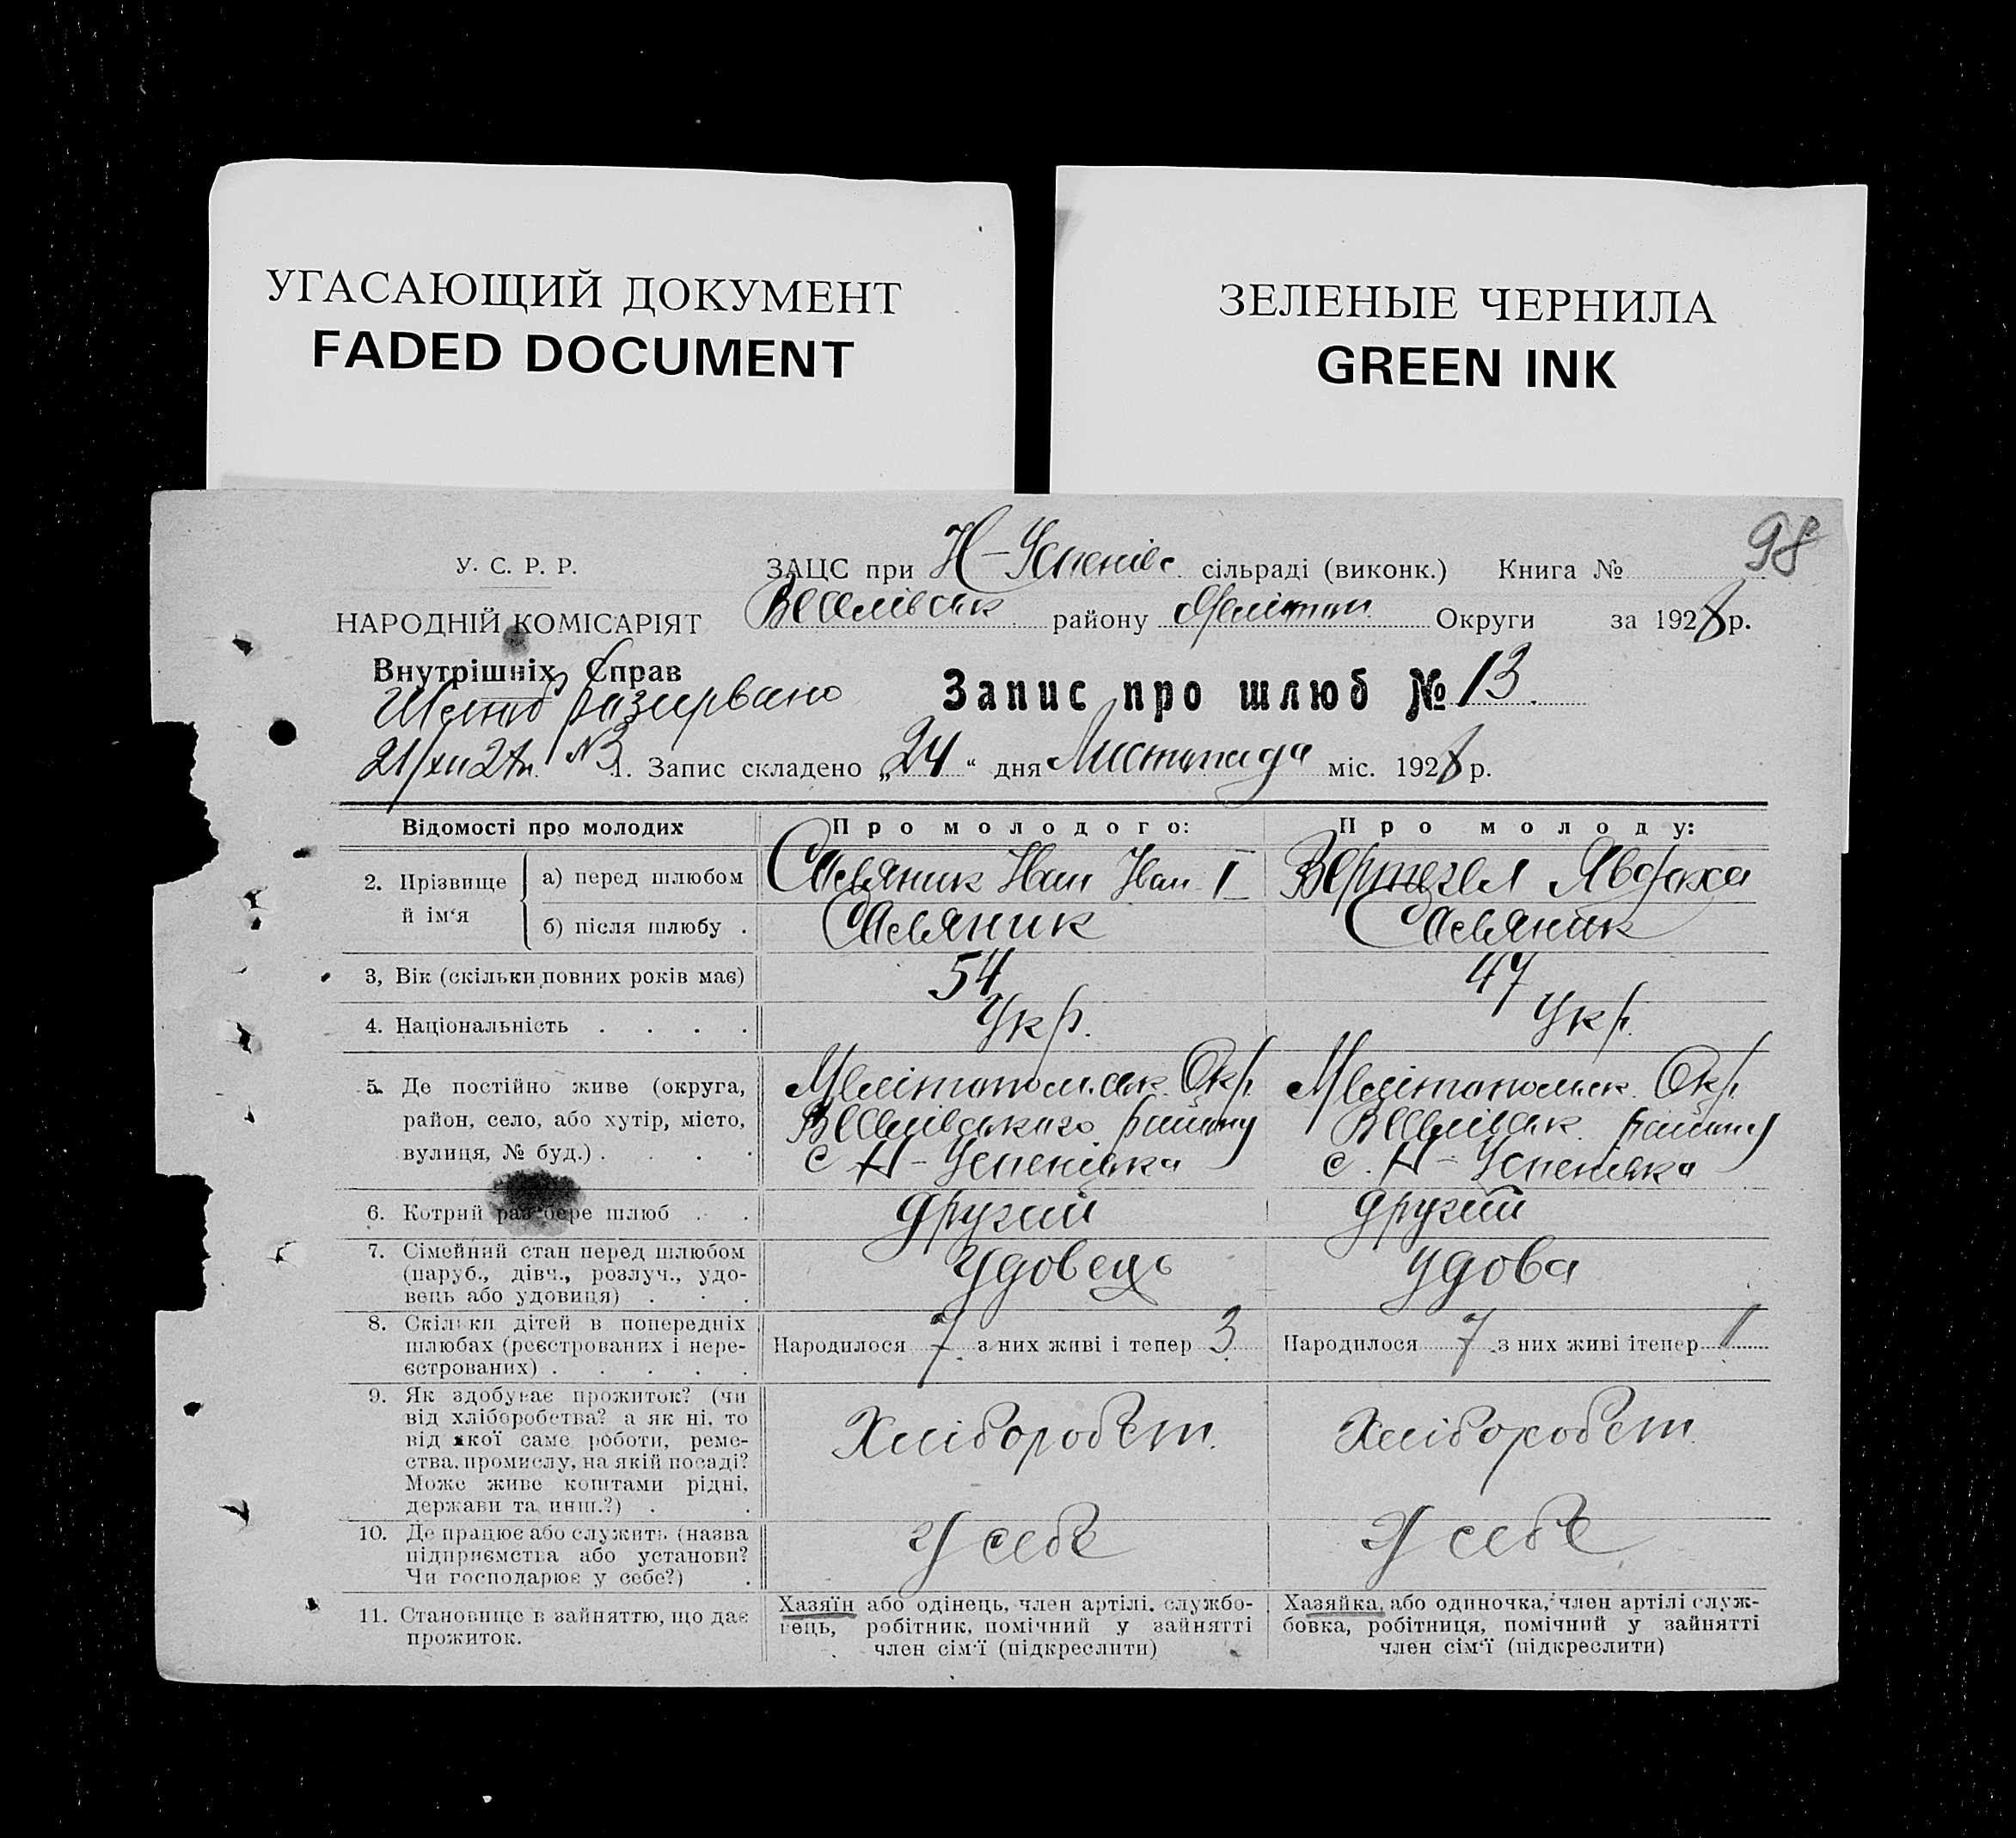 УГАСАЮЩИЙ ДОКУМЕНТ
FADED DOCUMENT
ЗЕЛЕНЫЕ ЧЕРНИЛА
GREEN INK
98
У. С. Р. Р.
НАРОДНІЙ КОМІСАРІЯТ
Внутрішніх Справ
ЗАЦС при Н-Успенівс сільраді (виконк.) Книга №
Веселівськ району Мелітоп. Округи за 1928 р.
Запис про шлюб № 13.
Шлюб разірвано
21/XII 28 р. №3
1. Запис складено „24“ дня Листопада міс. 1928 р.
Відомості про молодих Про молодого: Про молоду:
2. Прізвище й ім‘я
а) перед шлюбом Іван Іван I Вертегел Явдоха
б) після шлюбу .
3, Вік (скільки повних років має) 54 47
4. Національність . . . . Укр. Укр.
5. Де постійно живе (округа, район, село, або хутір, місто, вулиця, № буд.) . . . .
Мелітопольськ. Окр. Мелітопольськ. Окр.
Веселівського району Веселівськ. району
с Н-Успенівка с. Н-Успенівка
6. Котрий раз бере шлюб . . другий другий
7. Сімейний стан перед шлюбом
(паруб., дівч., розлуч., удо-
вець або удовиця) . . . удовець удова
8. Скільки дітей в попередніх
шлюбах (реєстрованих і нере-
єстрованих) . . . . .
Народилося 7 з них живі і тепер 3 Народилося 7 з них живі ітепер 1
9. Як здобуває прожиток? (чи
від хліборобства? а як ні, то
від якої саме роботи, реме-
ства, промислу, на якій посаді?
Може живе коштами рідні,
держави та инш.?) . .
Хліборобст. Хліборобст.
10. Де працює або служить (назва
підприємства або установи?
Чи господарює у себе?) .
У себе У себе
11. Становище в зайняттю, що дає
прожиток.
Хазяїн або одінець, член артілі, службо-
вець, робітник, помічний у зайнятті
член сім‘ї (підкреслити)
Хазяйка, або одиночка, член артілі служ-
бовка, робітниця, помічний у зайнятті
член сім‘ї (підкреслити)